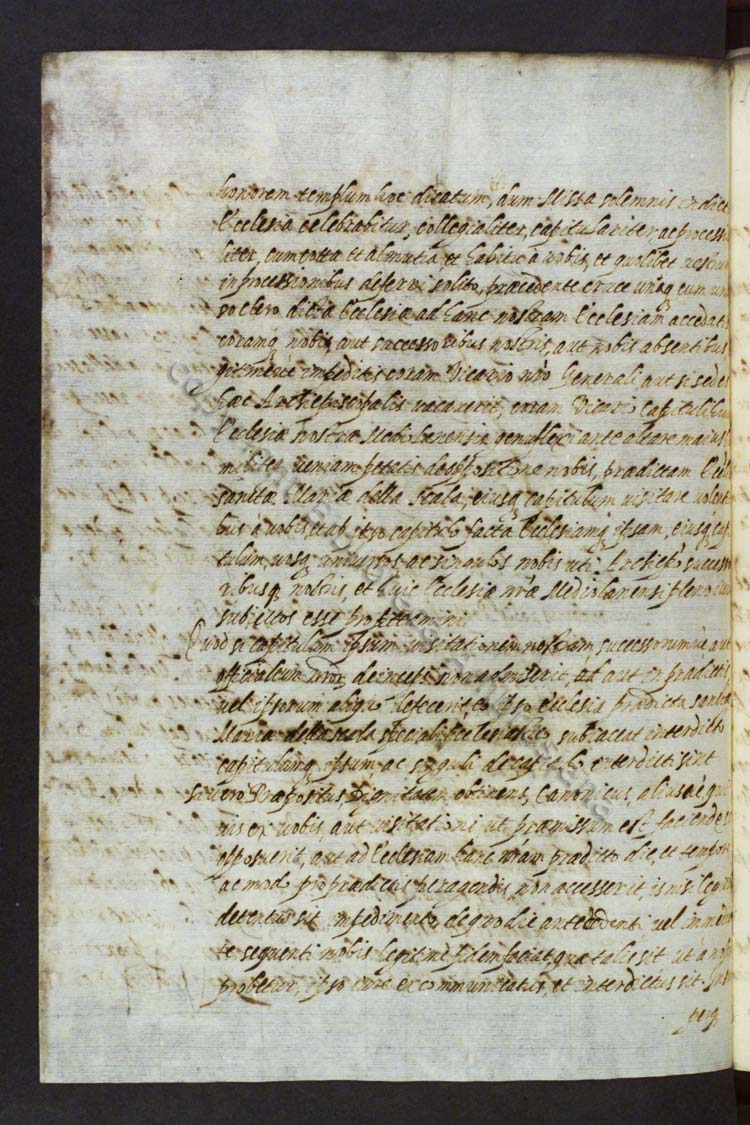 honorem templum hoc dicatum, dum Missa solemnis in dict
Ecclesia celebrabitur, collegialiter, capitulariter, ac processio
liter, cum cotta et almutia, et habitu à vobis, et quolibet vestrum
in processionibus deferri solito, præcedente cruce unaq cum uni
vo clero dictæ Ecclesiæ ad hanc nostram Ecclesiam accedatis
coramq nobis, aut successoribus nostris, aut nobis absentibus
gitimeue impeditis coram Vicario nro Generali, aut si sedes
hæc Archiepiscopalis vacauerit, coram Vicario Capituli hui
Ecclesiæ nostræ Mediolanensis genuflexi ante altare maius
militer ueniam petatis de oppositione nobis, prædictam Eccl
sanctæ Mariæ della Scala, eiusq capitulum visitare volent
bus à vobis, et ab ipso capitulo facta Ecclesiamq ipsam, eiusq cap
tulum, uosq universos, ac singulos nobis uti Archiepo successo
ribusq nostris, et huic Ecclesiæ nræ Mediolanensi pleno iure
subiectos esse profiteamini.
Quod si capitulum ipsum visitationem nostram successorumue aut
officialium nror deinceps non admiserit, ad aut in prædictis
uel ipsorum aliquo defecerit, eo ipso Ecclesia prædicta sanctæ
Mariæ della scala speciali Ecclesiastico subiaceat interdicto
capitulumq ipsum, ac singuli de capitulo interdicti sint
Si uero Præpositus Dignitatem obtinens, Canonicus, aliusue qui
uis ex uobis, aut visitationi ut præmissum est faciendæ
opposuerit, aut ad Ecclesiam hanc nram prædicto die, et tempore
ac modo pro prædictis peragendis, non accesserit, is nisi legit
detentus sit impedimento, de quo die antecedenti uel immedia
te sequenti nobis legitime fidem faciat, quæ talis sit ut à no
probetur, ipso iure excommunicatus, et interdictus sit. In su
perq